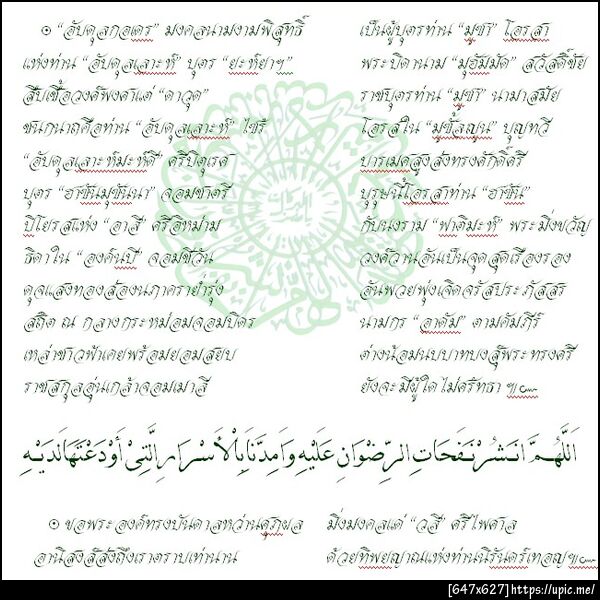 ๏ “อับดุลกอเดร” มงคลนามงามพิสุทธิ์ เป็นผู้บุตรท่าน “มูซา” โอรสา
แห่งท่าน “อับดุลเลาะห์” บุตร “ยะห์ยาฯ” พระบิดานาม “มุฮัมมัด” สวัสดิ์ชัย
สืบเชื้อวงศ์พงศาแต่ “ดาวุด” ราชบุตรท่าน “มูซา” นามาสมัย
ชนกนาถคือท่าน “อับดุลเลาะห์” ไซร้ โอรสใน “มูซั้ลญูน” บุญทวี
“อับดุลเลาะห์มะห์ดี” ศรีปิตุเรศ บารเมศสูงส่งทรงศักดิ์ศรี
บุตร “ฮาซันมุซันนา” จอมชาตรี บุรุษนี้โอรสาท่าน “ฮาซัน”
ปิโยรสแห่ง “อาลี” ศรีอิหม่าม กับนงราม “ฟาติมะห์” พระมิ่งขวัญ
ธิดาใน “องค์นบี” จอมชีวัน วงศ์วานอันเป็นจุดสุดเรืองรอง
ดุจแสงทองส่องนภาคราย่ำรุ่ง อันพวยพุ่งเจิดจรัสประภัสสร
สถิต ณ กลางกระหม่อมจอมบิดร นามกร “อาดัม” ตามคัมภีร์
เหล่าชาวฟ้าเคยพร้อมยอมสยบ ต่างน้อมนบบาทบงสุ์พระทรงศรี
ราชสกุลอุ่นเกล้าจอมเมาลี ยังจะมีผู้ใดไม่ศรัทธา ๚
اَللّٰهُمَّ انْشُرْ نَفَحَاتِ الرِّضْوَانِ عَلَيْهِ وَاَمِدَّنَا بِالْاَسْرَارِ الَّتِيْ أَوْدَعْتَهَا لَدَيْهِ
๏ ขอพระองค์ทรงบันดาลหว่านศุภผล มิ่งมงคลแด่ “วลี” ศรีไพศาล
อานิสงส์สั่งถึงเราตราบเท่านาน ด้วยทิพยญาณแห่งท่านนิรันดร์เทอญ๚
[647x627] https://upic.me/